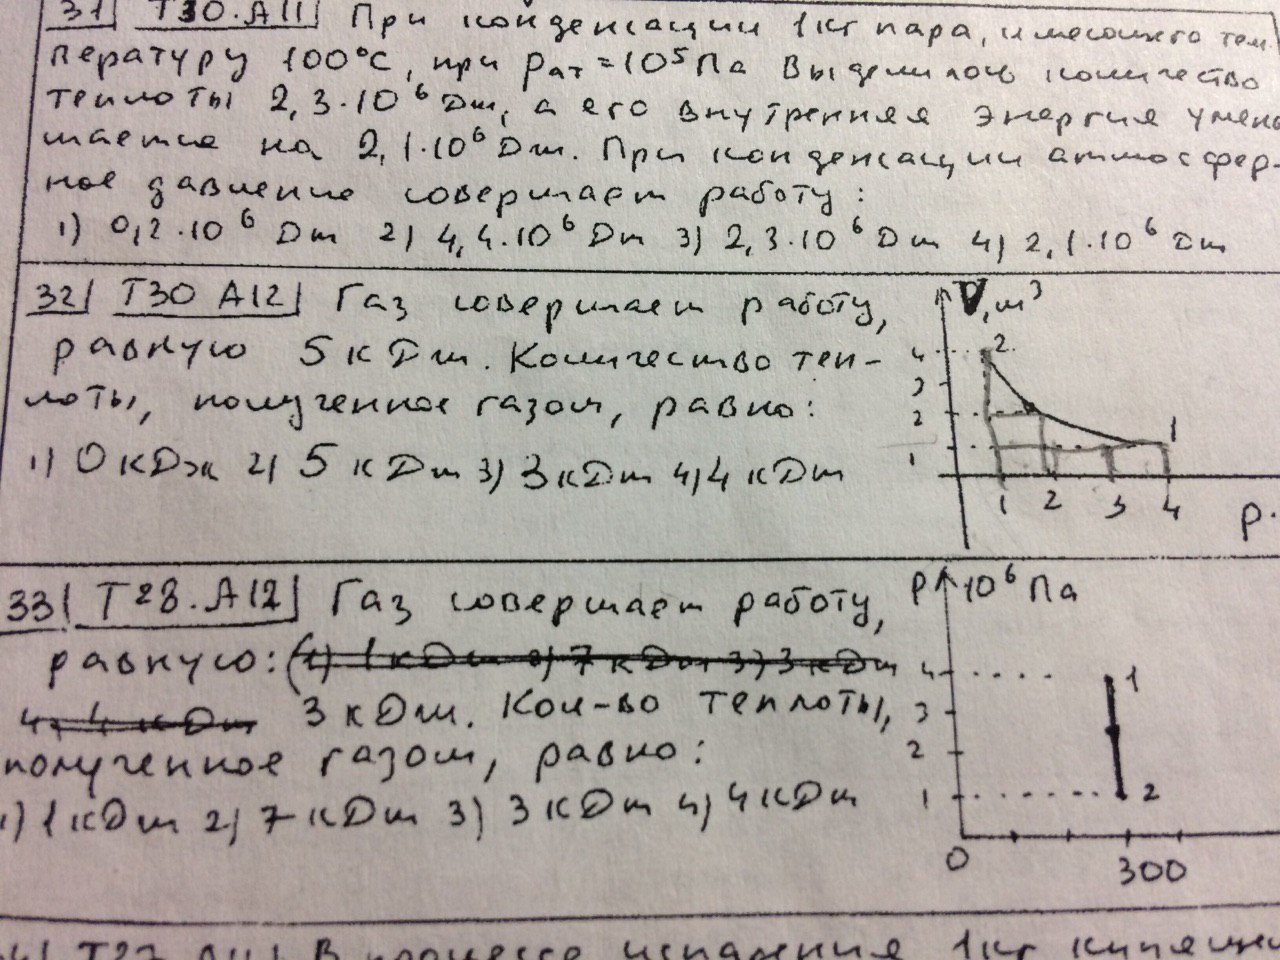 31 Т30.А11 При конденсации 1кг пара, имеющего тем
пературу 100°С, при pат=10⁵Па выделилось количество
теплоты 2,3·10⁶ Дж, а его внутренняя энергия умень
шается на 2,1·10⁶ Дж. При конденсации атмосфер-
ное давление совершает работу:
1) 0,2·10⁶ Дж 2) 4,4·10⁶ Дж 3) 2,3·10⁶ Дж 4) 2,1·10⁶ Дж
32 Т30 А12 Газ совершает работу,
равную 5 кДж. Количество теп-
лоты, полученное газом, равно:
1) 0 кДж 2) 5 кДж 3) 3 кДж 4) 4 кДж
V, м³
4
2
3
2
1
1
1 2 3 4
p·
33 Т28.А12 Газ совершает работу,
равную: (1) 1 кДж 2) 7 кДж 3) 3 кДж
4) 4 кДж 3 кДж. Кол-во теплоты,
полученное газом, равно:
1) 1 кДж 2) 7 кДж 3) 3 кДж 4) 4 кДж
p 10⁶ Па
4
1
3
2
1
2
0
300
Т27 В процессе испарения 1кг